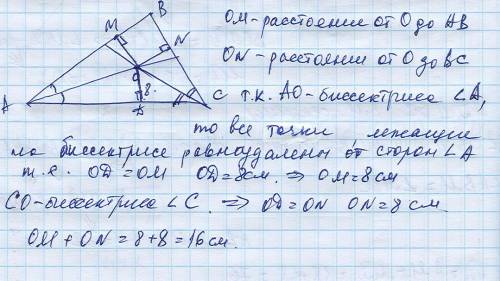 M
B
N
O
A
8
D
C
OM-расстояние от O до AB
ON-расстояние от O до BC
т.к. AO-биссектриса ∠A,
то все точки, лежащие
на биссектрисе равноудалены от сторон ∠A
т.е. OD=OM OD=8см. ⇒ OM=8см
CO-биссектриса ∠C. ⇒ OD=ON ON=8см
OM+ON=8+8=16см.